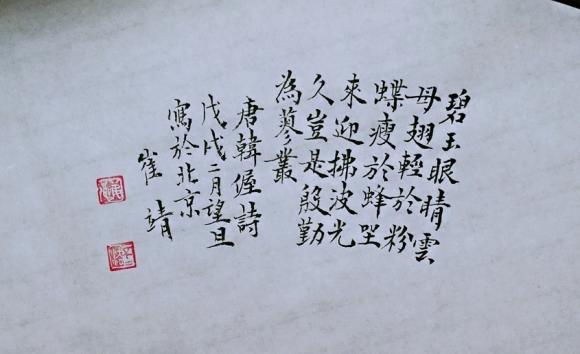 碧玉眼睛雲
母翅輕於粉
蝶瘦於蜂坐
來迎拂波光
久豈是殷勤
為蓼叢
唐韓偓詩
戊戌二月望旦
寫於北京
崔靖